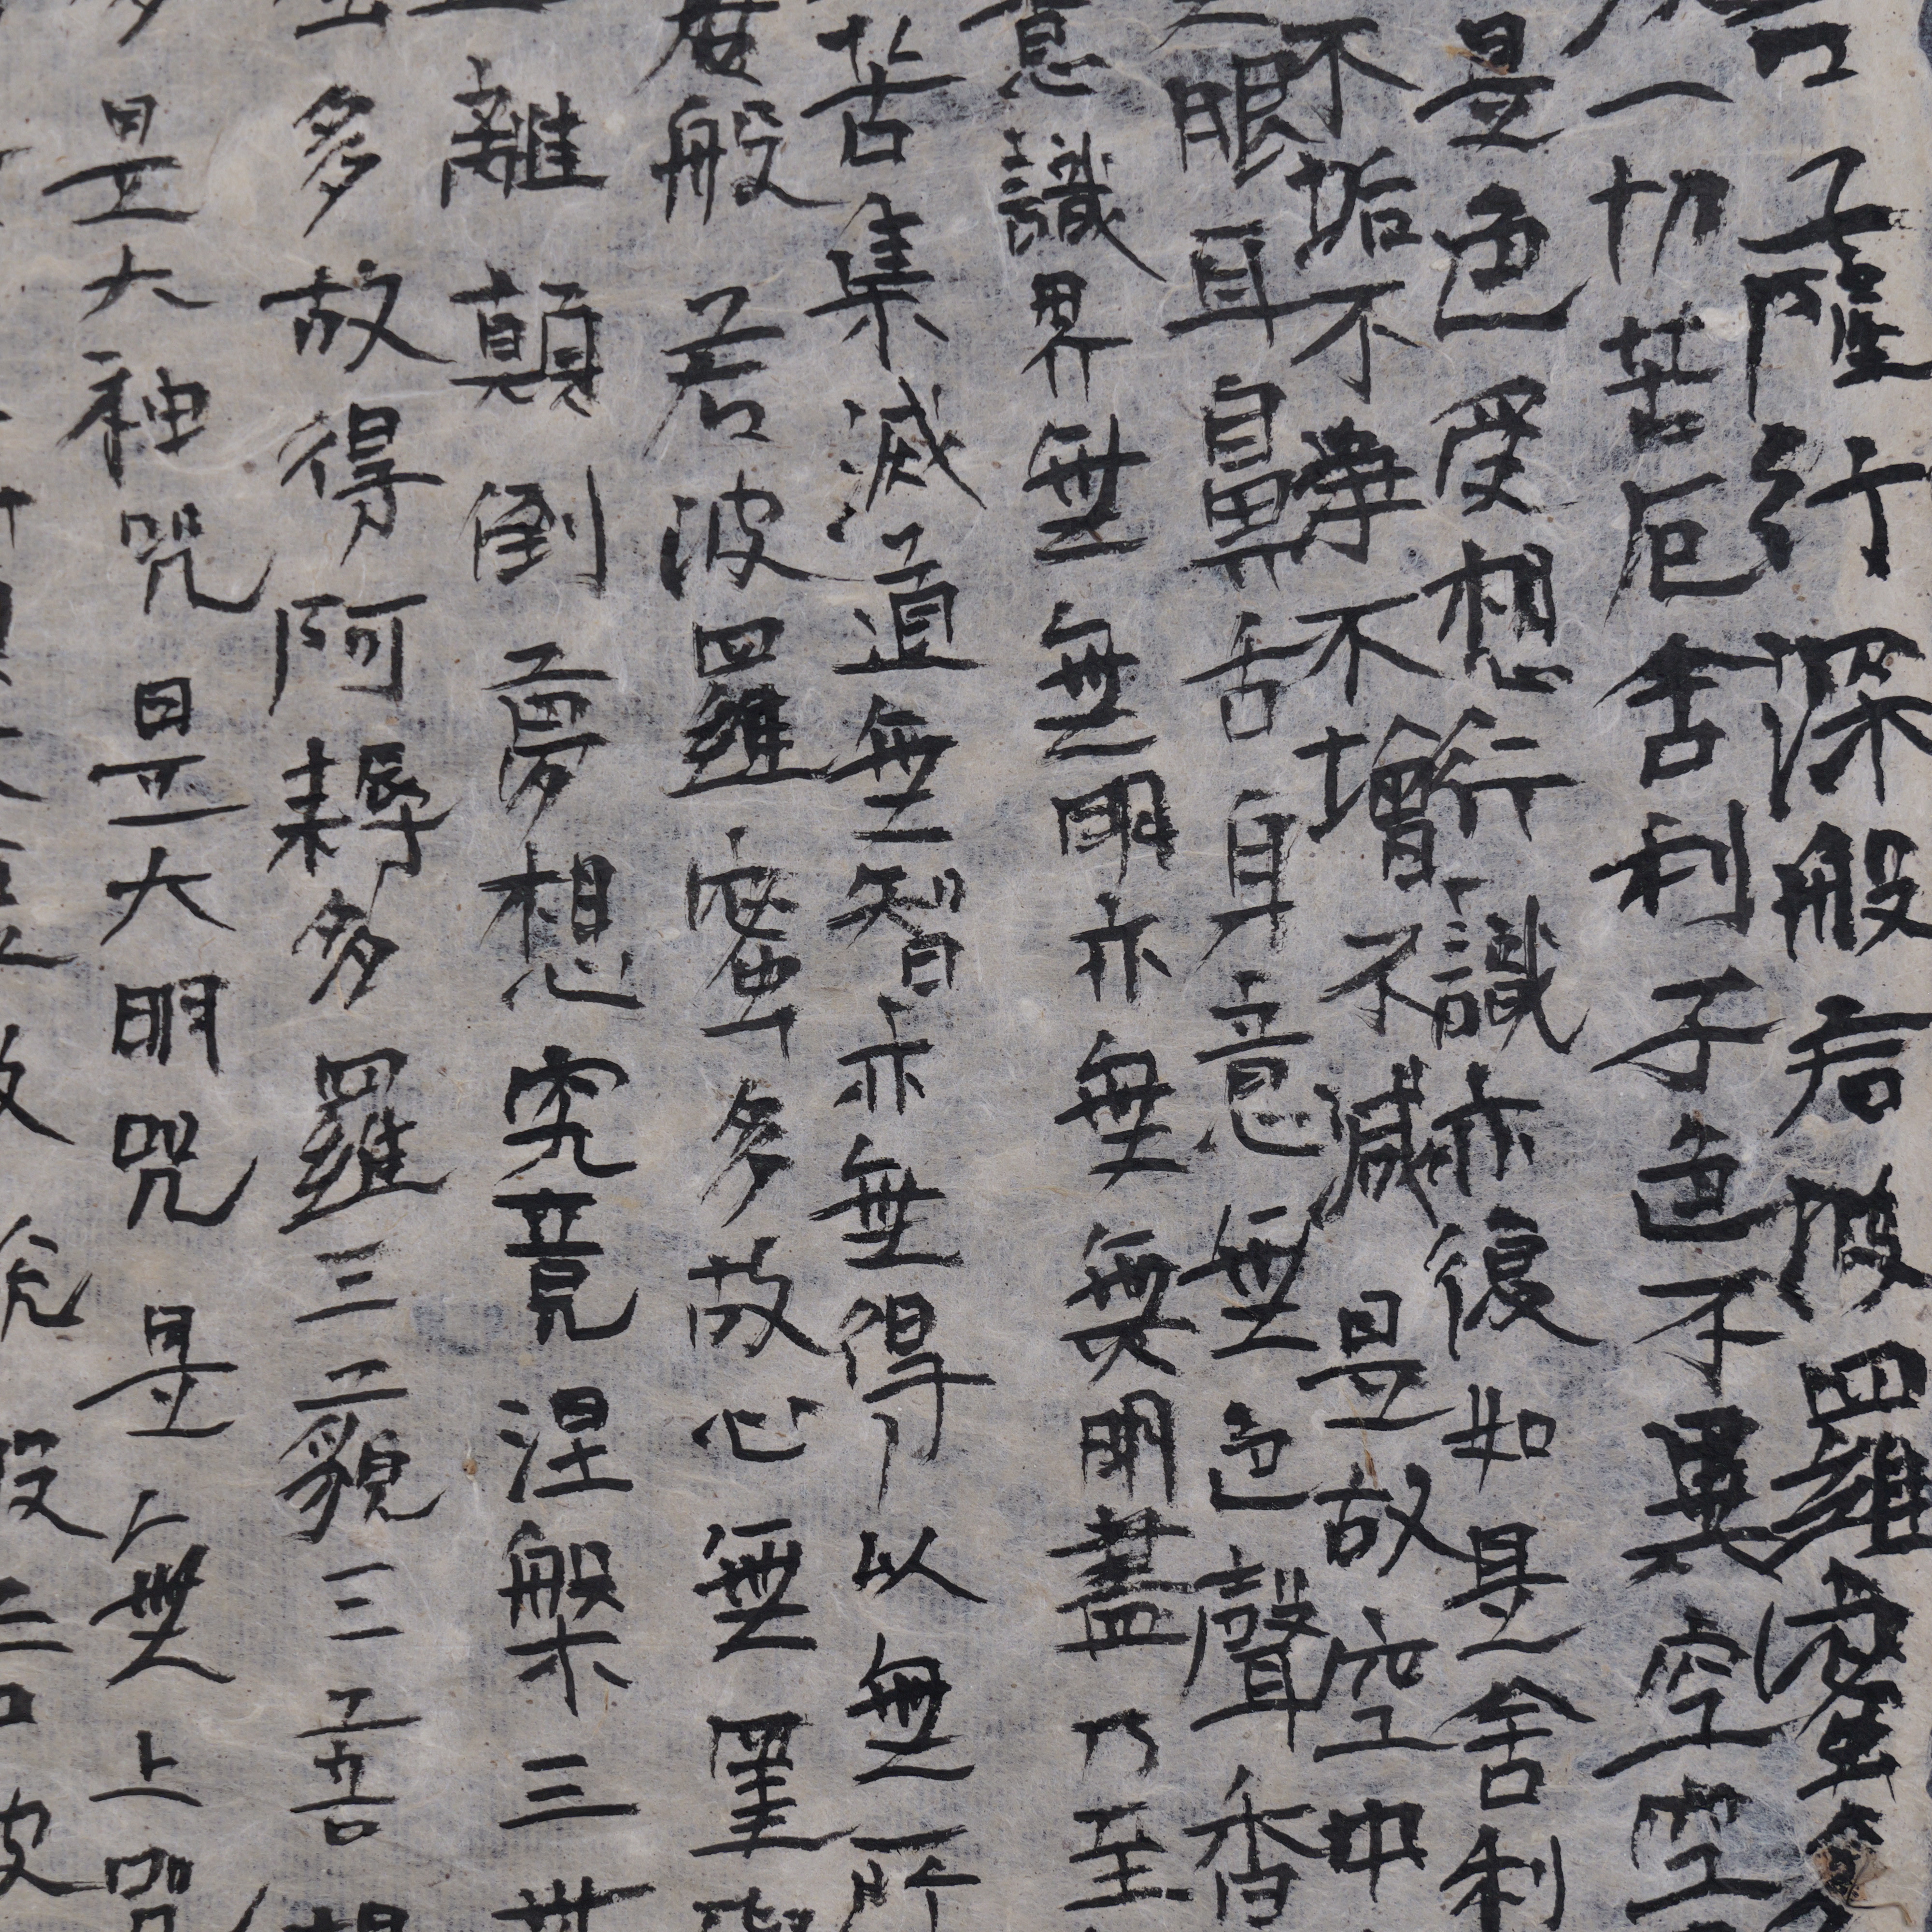 菩薩行深般若波羅蜜多
一切苦厄舍利子色不異空空
是色受想行識亦復如是舍利
不垢不淨不增不減是故空中
眼耳鼻舌身意無色聲香
意識界無無明亦無無明盡乃至
苦集滅道無智亦無得以無所
般若波羅蜜多故心無罣礙
離顛倒夢想究竟涅槃三世
多故得阿耨多羅三藐三菩提
是大神咒是大明咒是無上咒